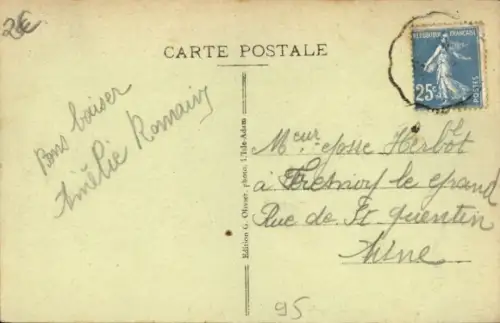 2€
CARTE POSTALE
REPUBLIQUE FRANÇAISE
25c
POSTES
Bons baiser
Amélie Romain
Edition G. Olivier, photo, L'Isle-Adam
Meur Josse Herbot
à Fresnoy le grand
Rue de St Quentin
Aisne
95